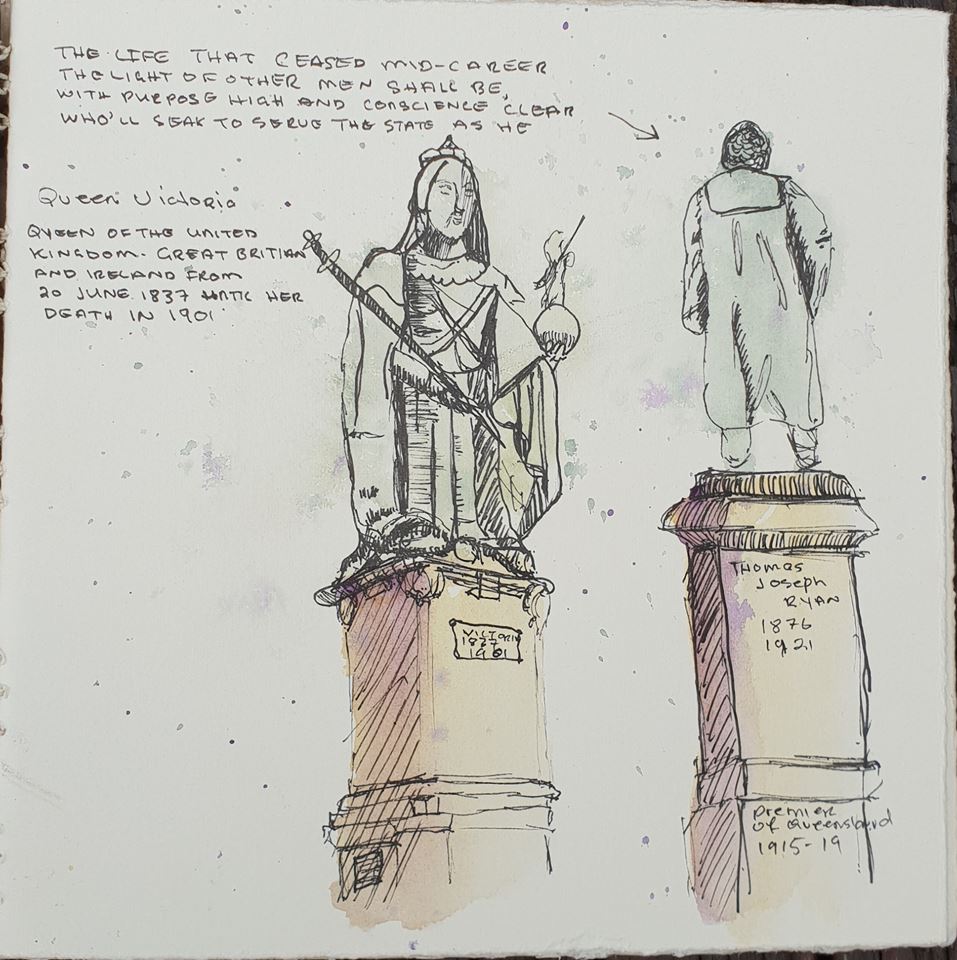 THE LIFE THAT CEASED MID-CAREER
THE LIGHT OF OTHER MEN SHALL BE,
WITH PURPOSE HIGH AND CONSCIENCE CLEAR
WHO'LL SEAK TO SERVE THE STATE AS HE
Queen Victoria
QUEEN OF THE UNITED
KINGDOM- GREAT BRITIAN
AND IRELAND FROM
20 JUNE 1837 UNTIL HER
DEATH IN 1901
VICTORIA
1837
1901
THOMAS
Joseph
RYAN
1876
1921
premier
of Queensland
1915-19